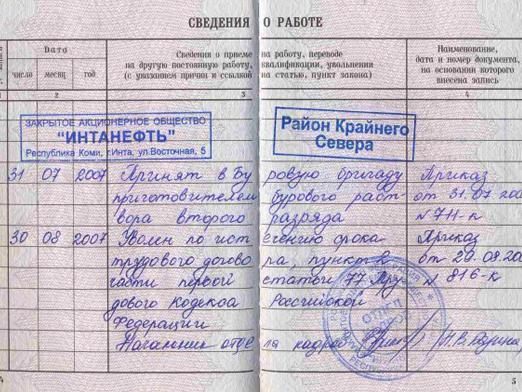 СВЕДЕНИЯ О РАБОТЕ
Дата
Сведения о приеме на работу, переводе
на другую постоянную работу, квалификации, увольнении
(с указанием причин и ссылкой на статью, пункт закона)
Наименование,
дата и номер документа,
на основании которого
внесена запись
число месяц год
1 2 3 4
ЗАКРЫТОЕ АКЦИОНЕРНОЕ ОБЩЕСТВО
"ИНТАНЕФТЬ"
Республика Коми, г.Инта, ул.Восточная, 5
Район Крайнего
Севера
31 07 2007 Принят в буровую бригаду Приказ
приготовителем бурового раст- от 31.07.200
вора второго разряда №711-к
30 08 2007 Уволен по истечению срока Приказ
трудового договора, пункт 2 от 29.08.20
части первой статьи 77 Тру- № 816-к
дового Кодекса Российской
Федерации
Начальник отдела кадров
4 5